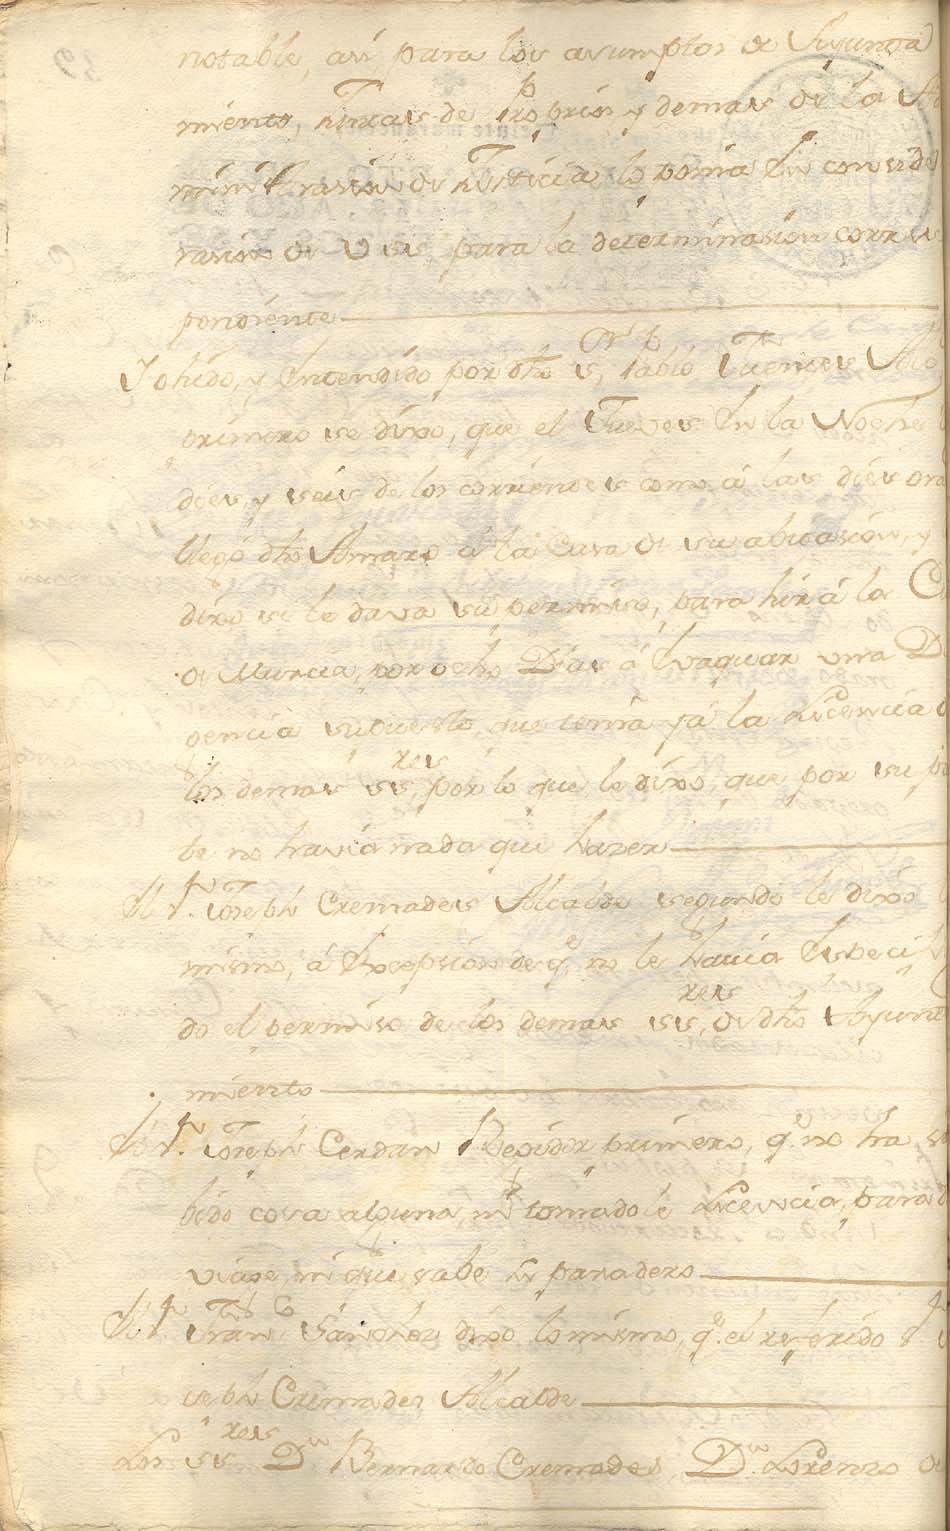 notable, asi para los asumptos de Ayunta
miento, Juntas de Proprios y demas de la Ad
ministrasion de Justicia lo ponia en conside
rasion de Vss, para la determinasion corres
pondiente
Y ohido, y entendido por dhos ss, Pablo Fuentes Alc
primero se dixo, que el Jueves en la Noche
dies, y seis de los corrientes como á las dies ora
llegó dho Amaro á la Casa de su abitasion, y
dixo si le dava su permiso, para hir á la Ci
de Murcia, por ocho Dias á Evaquar una D
gencia supuesto, que tenia yá la Licencia d
los demas ss.res, por lo que le dixo, que por su pa
te no havia nada que hazer
El Sr. Joseph Cremades Alcalde segundo le dixo
mismo, á Excepsion de q.e no le havia Especi
do el permiso de los demas ss.res de dho Ayunta
miento
El Sr. Joseph Cerdan Regidor primero, q.e no ha s
bido cosa alguna, ni tomadole Licencia, para
viaje, ni que sabe su paradero
El Sr. Fran.co Sanches dixo lo mismo, q.e el referido Sr
seph Cremades Alcalde
Los ss.res Dn Bernardo Cremades, Dn. Lorenso de